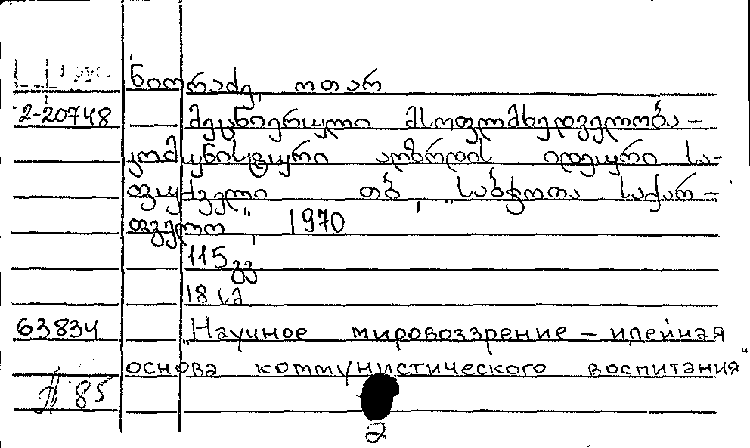 ნიორაძე, ოთარ
2-20748 მეცნიერული მსოფლმხედველობა –
კომუნისტური აღზრდის იდეური სა-
ფუძველი თბ., „საბჭოთა საქარ-
თველო", 1970
115 გვ.
18 სმ
63834 „Научное мировоззрение – идейная
основа коммунистического воспитания"
85
2